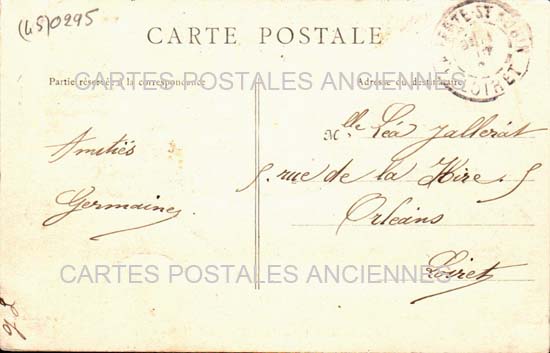 (45)0295
CARTE POSTALE
LA FERTE-ST-AUBIN
LOIRET
Partie réservée à la correspondance
Adresse du destinataire
CARTES POSTALES ANCIENNES
Amitiés
Germaine
Mlle Léa Jallerat
5. rue de la Hire. 5
Orléans
Loiret
CARTES POSTALES ANCIENNES